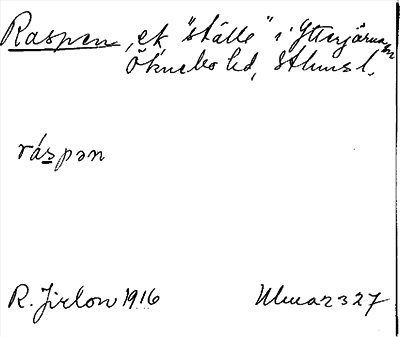 Raspen, ett "ställe" i Ytterjärna sn
Öknebo hd, Sthmsl.
ráspən
R. Jirlow 1916
Ulma 2327